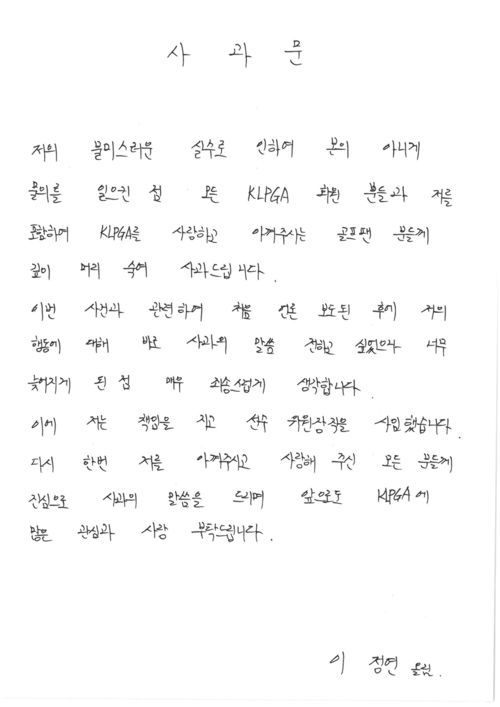 사 과 문
저의 불미스러운 실수로 인하여 본의 아니게
물의를 일으킨 점 모든 KLPGA 회원 분들과 저를
포함하여 KLPGA를 사랑하고 아껴주시는 골프팬 분들께
깊이 머리 숙여 사과드립니다.
이번 사건과 관련하여 처음 언론 보도된 후에 저의
행동에 대해 바로 사과의 말씀 전하고 싶었으나 너무
늦어지게 된 점 매우 죄송스럽게 생각합니다.
이에 저는 책임을 지고 선수 위원장직을 사임했습니다.
다시 한번 저를 아껴주시고 사랑해 주신 모든 분들께
진심으로 사과의 말씀을 드리며 앞으로도 KLPGA에
많은 관심과 사랑 부탁드립니다.
이 정연 올림.